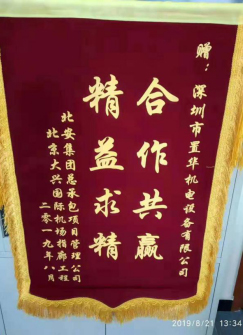 赠：深圳市置华机电设备有限公司
合作共赢
精益求精
北安集团总承包项目管理公司
北京大兴国际机场指廊工程
二零一九年八月
2019/8/21 13:34